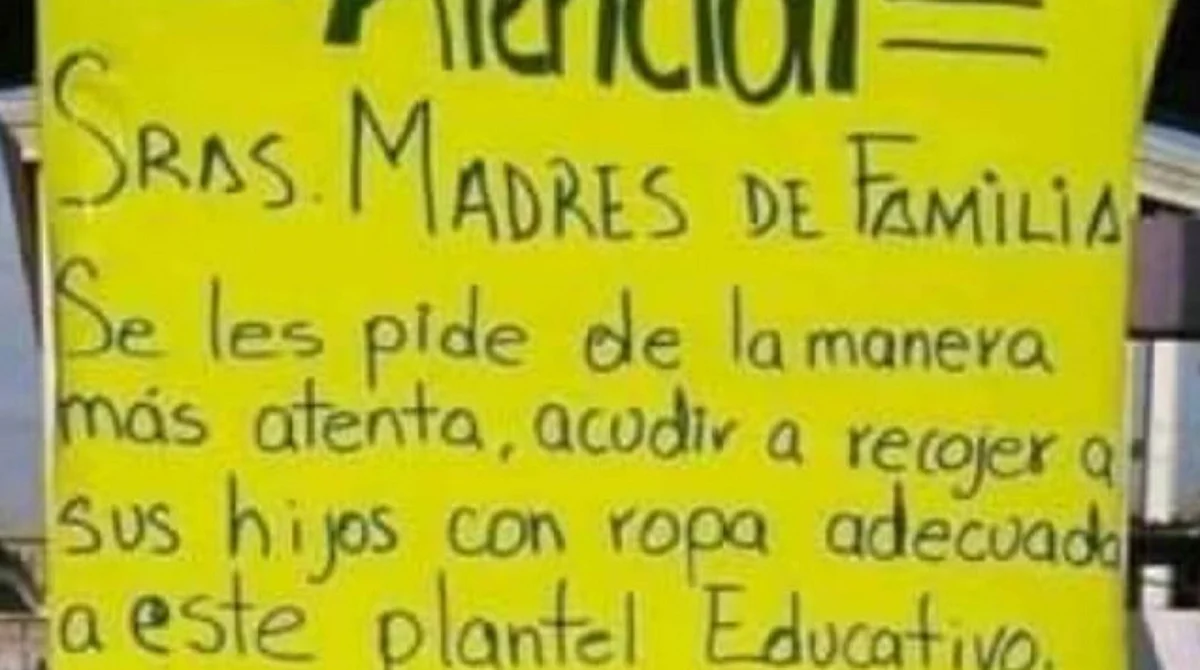 Atención
SRAS. MADRES DE FAMILIA
Se les pide de la manera
más atenta, acudir a recojer a
sus hijos con ropa adecuada
a este plantel Educativo.